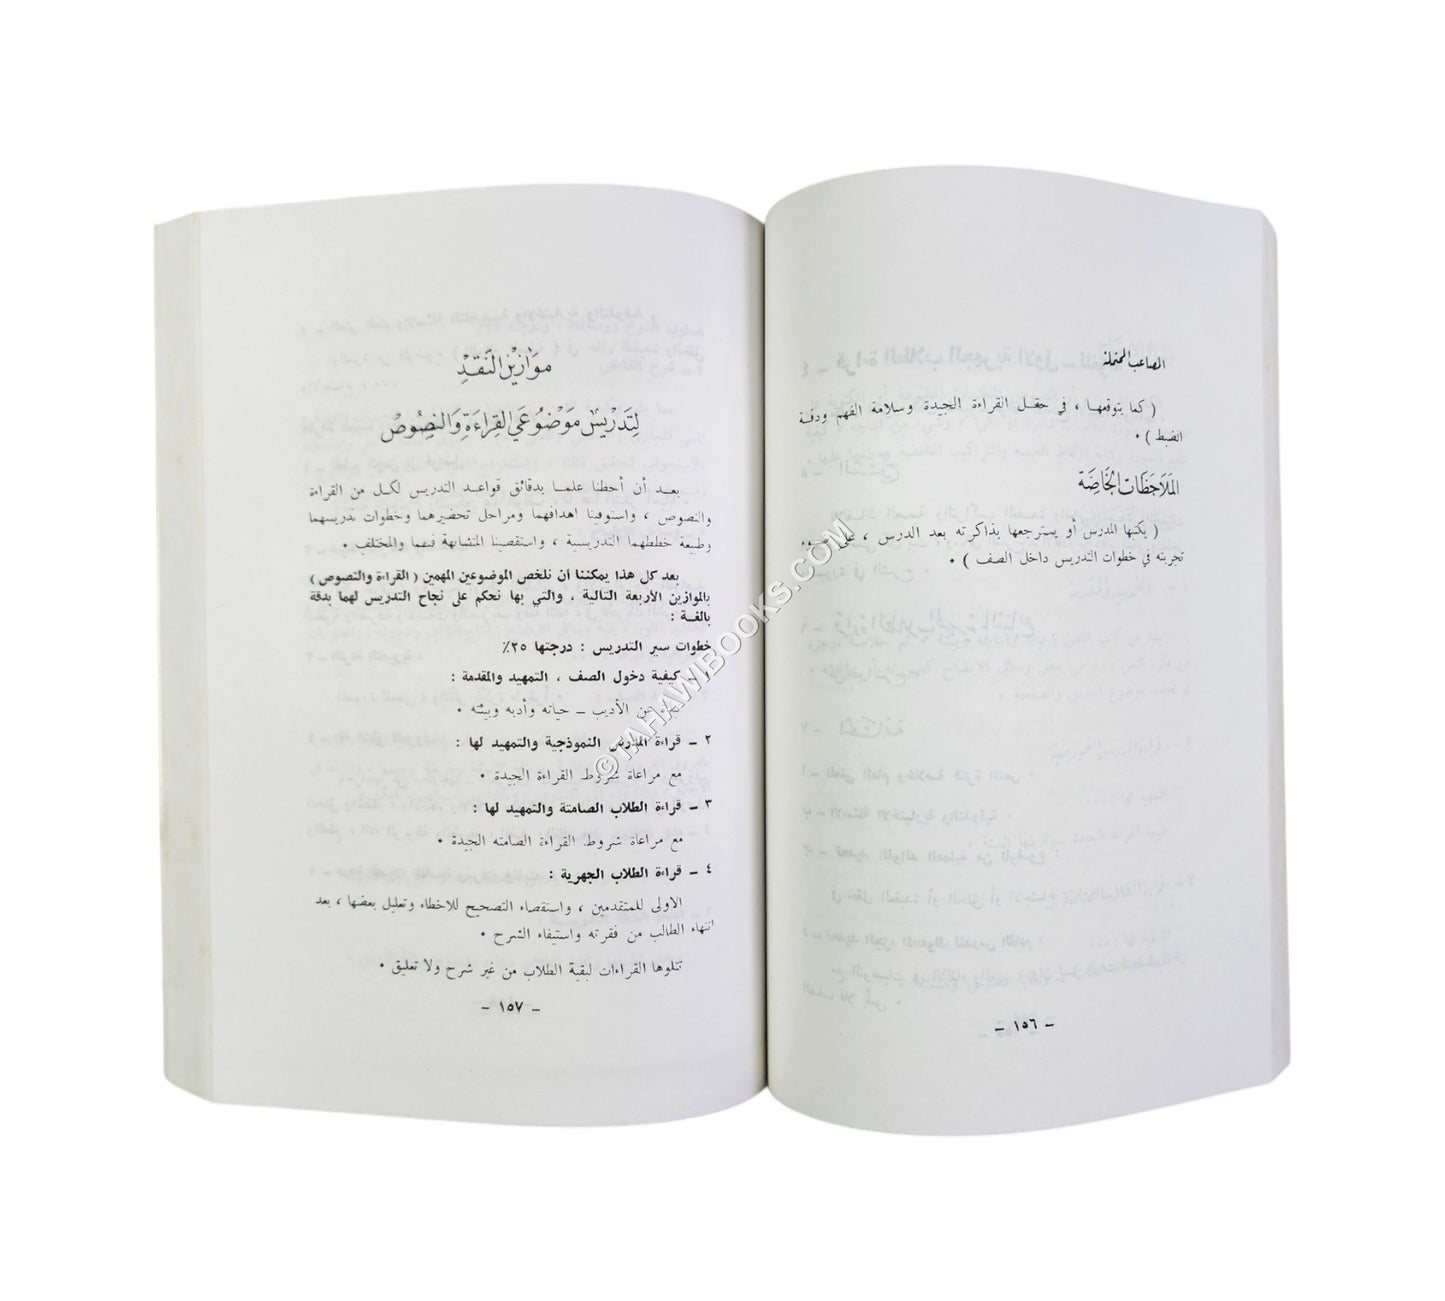 الصاعب المحتملة
( كما يتوقعها ، في حقل القراءة الجيدة وسلامة الفهم ودقة
الضبط ) •
المَلَاحَظَات الخَاصَّة
( يكتبها المدرس أو يسترجعها بذاكرته بعد الدرس ، على ضوء
تجربته في خطوات التدريس داخل الصف ) •
– ١٥٦ –
مَوَازين النَّقدِ
لِتَدريسْ مَوضُوعَي القِراءَةِ وَالنصُوصْ
بعد أن أحطنا علما بدقائق قواعد التدريس لكل من القراءة
والنصوص ، واستوفينا اهدافهما ومراحل تحضيرهما وخطوات تدريسهما
وطبيعة خططهما التدريسية ، واستقصينا المتشابهة فيهما والمختلف •
بعد كل هذا يمكننا أن نلخص الموضوعين المهمين ( القراءة والنصوص )
بالموازين الأربعة التالية ، والتي بها نحكم على نجاح التدريس لهما بدقة
بالغة :
خطوات سير التدريس : درجتها ٢٥٪
– كيفية دخول الصف ، التمهيد والمقدمة :
عن الأديب – حياته وأدبه وبيئته •
٢ – قراءة المدرس النموذجية والتمهيد لها :
مع مراعاة شروط القراءة الجيدة •
٣ – قراءة الطلاب الصامتة والتمهيد لها :
مع مراعاة شروط القراءة الصامته الجيدة •
٤ – قراءة الطلاب الجهرية :
الاولى للمتقدمين ، واستقصاء التصحيح للاخطاء وتعليل بعضها ، بعد
انتهاء الطالب من فقرته واستيفاء الشرح •
تتلوها القراءات لبقية الطلاب من غير شرح ولا تعليق •
– ١٥٧ –
©TAHAWIBOOKS.COM